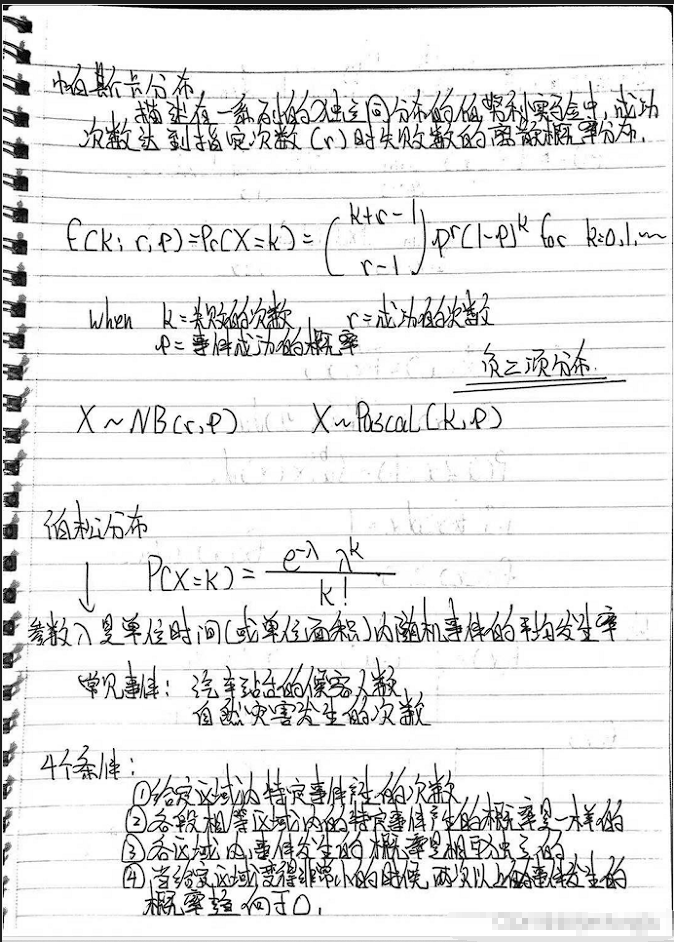 帕斯卡分布
描述在一系列的独立同分布的伯努利实验中,成功
次数达到指定次数(r)时失败数的离散概率分布.
f(k; r, p) = Pr(X=k) = (k+r-1 r-1) p^r (1-p)^k for k=0,1,...
when k=失败的次数 r=成功的次数
p=事件成功的概率
负二项分布.
X~NB(r,p) X~Pascal(k,p)
泊松分布
P(X=k) = e^-λ λ^k / k!
参数λ是单位时间(或单位面积)内随机事件的平均发生率
常见事件: 汽车站台的候客人数
自然灾害发生的次数
4个条件:
①给定区域内特定事件产生的次数
②各段相等区域内的特定事件产生的概率是一样的
③各区域内,事件发生的概率是相互独立的
④当给定区域变得非常小的时候,两次以上的事件发生的
概率趋向于0.